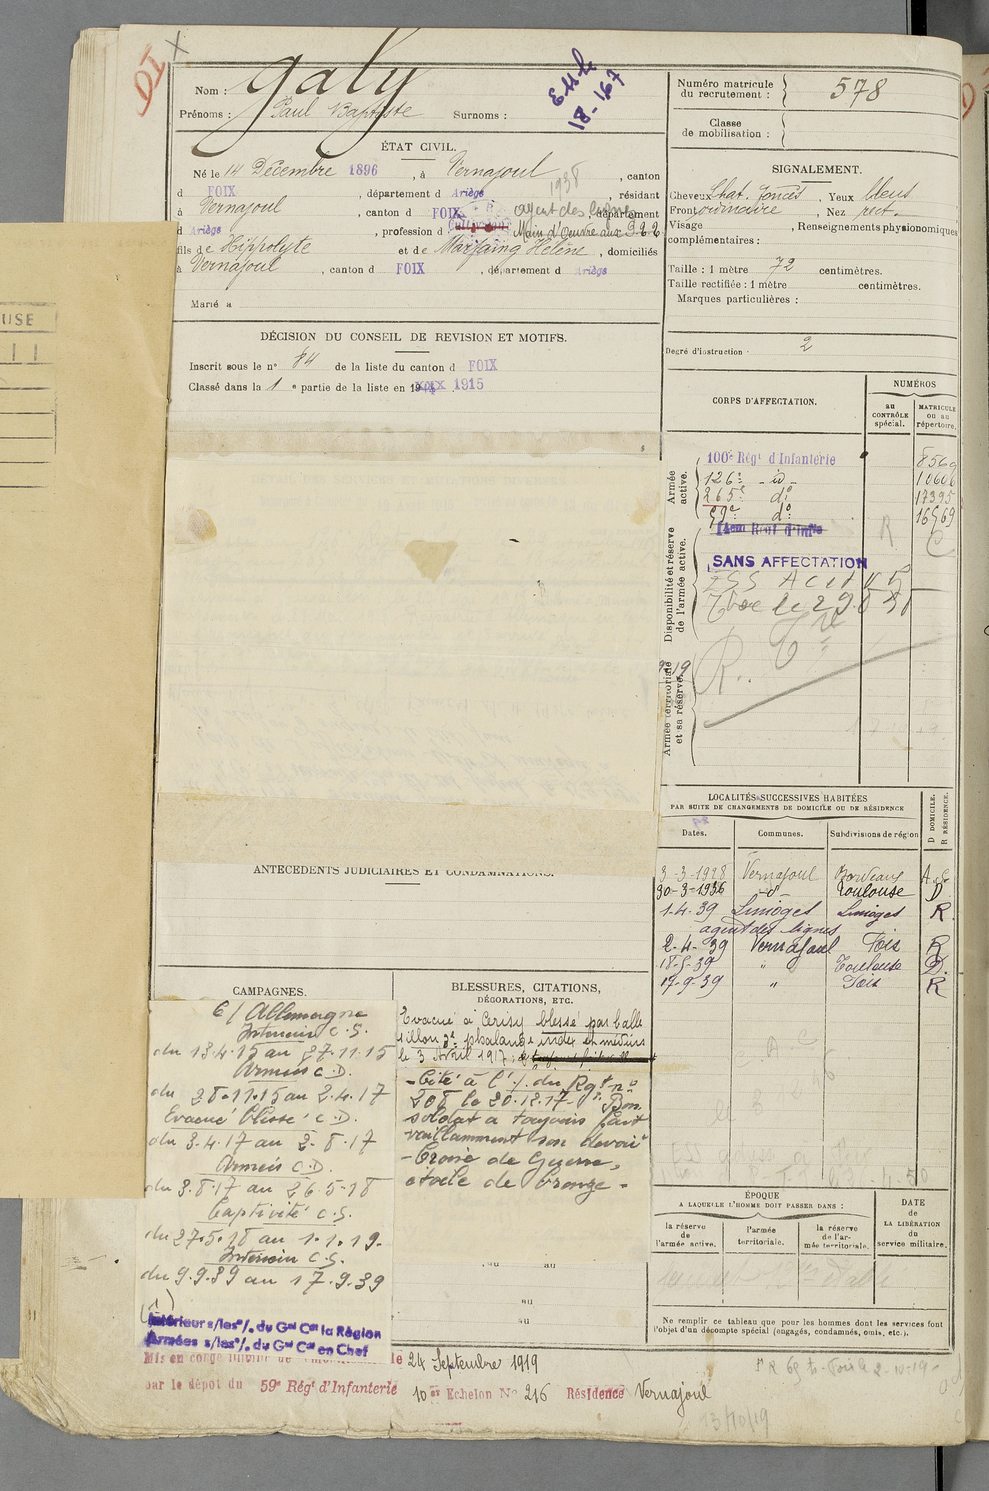 Nom : Galy
Prénoms : Paul Baptiste Surnoms :
18-167
Numéro matricule du recrutement : 578
Classe de mobilisation :
ÉTAT CIVIL.
Né le 14 Décembre 1896, à Vernajoul, canton
d FOIX, département d Ariège, résidant
1938
à Vernajoul, canton d FOIX, département
agent des lignes
d Ariège, profession d Cultivateur Main d'Oeuvre aux
fils de Hippolyte et de Marfaing Hélène, domiciliés
à Vernajoul, canton d FOIX, département d Ariège
Marié à
SIGNALEMENT.
Cheveux Chat. foncés, Yeux bleus
Front ordinaire, Nez rect.
Visage , Renseignements physionomiques
complémentaires :
Taille : 1 mètre 72 centimètres.
Taille rectifiée : 1 mètre centimètres.
Marques particulières :
Degré d'instruction : 2
DÉCISION DU CONSEIL DE REVISION ET MOTIFS.
Inscrit sous le n° 84 de la liste du canton d FOIX
Classé dans la 1 e partie de la liste en 1915
CORPS D'AFFECTATION.
NUMÉROS
au CONTRÔLE spécial.
MATRICULE ou au répertoire.
Armée active.
100e Régt d'Infanterie 8569
126e - id - 10606
265e do 17395
59e do 16569
Disponibilité et réserve de l'armée active.
14ème Regt d'Infie
SANS AFFECTATION
Armée territoriale et sa réserve.
LOCALITÉS SUCCESSIVES HABITÉES
PAR SUITE DE CHANGEMENTS DE DOMICILE OU DE RÉSIDENCE
Dates. Communes. Subdivisions de région D DOMICILE. R RÉSIDENCE.
3-3-1928 Vernajoul Bordeaux
30-3-1936 -do- Toulouse D
1-4-39 Limoges Limoges R
agent des lignes
2-4-39 Vernajoul Foix R
18-5-39 " Toulouse D
17-9-39 " Foix R
ANTÉCÉDENTS JUDICIAIRES ET CONDAMNATIONS.
CAMPAGNES.
C/ Allemagne
Intérieur C.S.
du 13.4.15 au 27.11.15
Armées C.D.
du 28.11.15 au 2.4.17
Evacué blessé C.D.
du 3.4.17 au 2.8.17
Armées C.D.
du 3.8.17 au 26.5.18
Captivité C.S.
du 27.5.18 au 1.1.19.
Intérieur C.S.
du 9.9.39 au 17.9.39
(1)
Intérieur s/les o/. du Gal Ct la Région
Armées s/les o/. du Gal Ct en Chef
BLESSURES, CITATIONS, DÉCORATIONS, ETC.
Evacué à Cerisy blessé par balle
sillon 3e phalange index et médius
le 3 Avril 1917;
- Cité à l'o/. du Rgt no
208 le 20.12.17 - Bon
soldat a toujours fait
vaillamment son devoir
- Croix de Guerre,
étoile de bronze -
au
au
au
ÉPOQUE
A LAQUELLE L'HOMME DOIT PASSER DANS :
la réserve de l'armée active.
l'armée territoriale.
la réserve de l'armée territoriale.
DATE de LA LIBÉRATION du service militaire.
Ne remplir ce tableau que pour les hommes dont les services font
l'objet d'un décompte spécial (engagés, condamnés, omis, etc.).
Mis en congé illimité de le 24 Septembre 1919
par le dépôt du 59e Régt d'Infanterie 10e Echelon No 216 Résidence Vernajoul
13/10/19